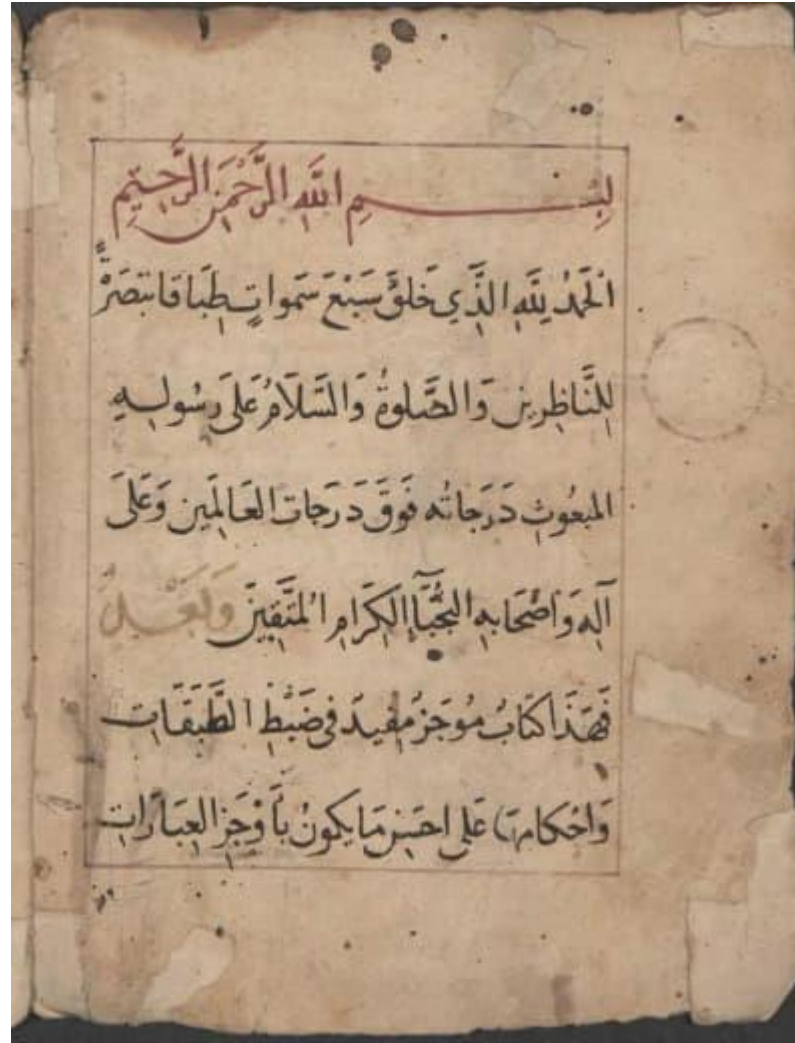 بِسْمِ اللَّهِ الرَّحْمَنِ الرَّحِيمِ
الحَمْدُ لِلَّهِ الَّذِي خَلَقَ سَبْعَ سَمَواتٍ طِبَاقا تبصَرَةً
لِلنَّاظِرِين وَالصَّلوةُ وَالسَّلَامُ عَلَى رَسُولِهِ
المبعُوثِ دَرَجَاتُه فَوقَ دَرَجَات العَالَمِين وَعَلَى
آلِهِ وَاَصْحَابِهِ النُّجَبَآءِ الكِرَامِ المُتَّقِينَ وَبَعْدُ
فَهَذَا كتَابُ مُوجَزُ مُفِيدٌ فِي ضَبْطِ الطَّبَقَات
وَاَحْكَامهَا عَلى احسَنِ مَا يكُونُ بأَوْجَزِ العِبَارَاتِ